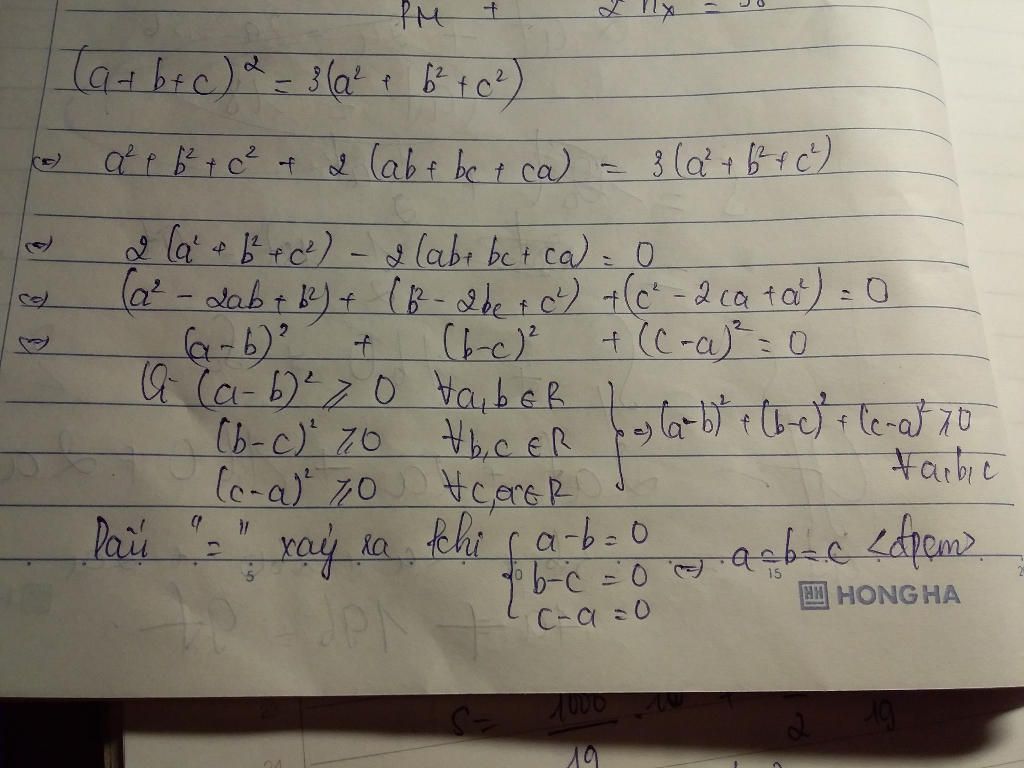 PM + 2 nx = 58
(a+b+c)² = 3(a² + b² + c²)
⇔ a² + b² + c² + 2 (ab + bc + ca) = 3(a² + b² + c²)
⇔ 2 (a² + b² + c²) - 2(ab + bc + ca) = 0
⇔ (a² - 2ab + b²) + (b² - 2bc + c²) + (c² - 2ca + a²) = 0
⇔ (a-b)² + (b-c)² + (c-a)² = 0
(a-b)² ⩾ 0 ∀a,b ∈ R
(b-c)² ⩾ 0 ∀b,c ∈ R
(c-a)² ⩾ 0 ∀c,a ∈ R
} ⇒ (a-b)² + (b-c)² + (c-a)² ⩾ 0
∀a,b,c
Dấu "=" xảy ra khi { a-b = 0
b-c = 0 ⇔ a=b=c <đpcm>
c-a = 0
5 10 15
HH HONG HA
S = 1000
19
2 19